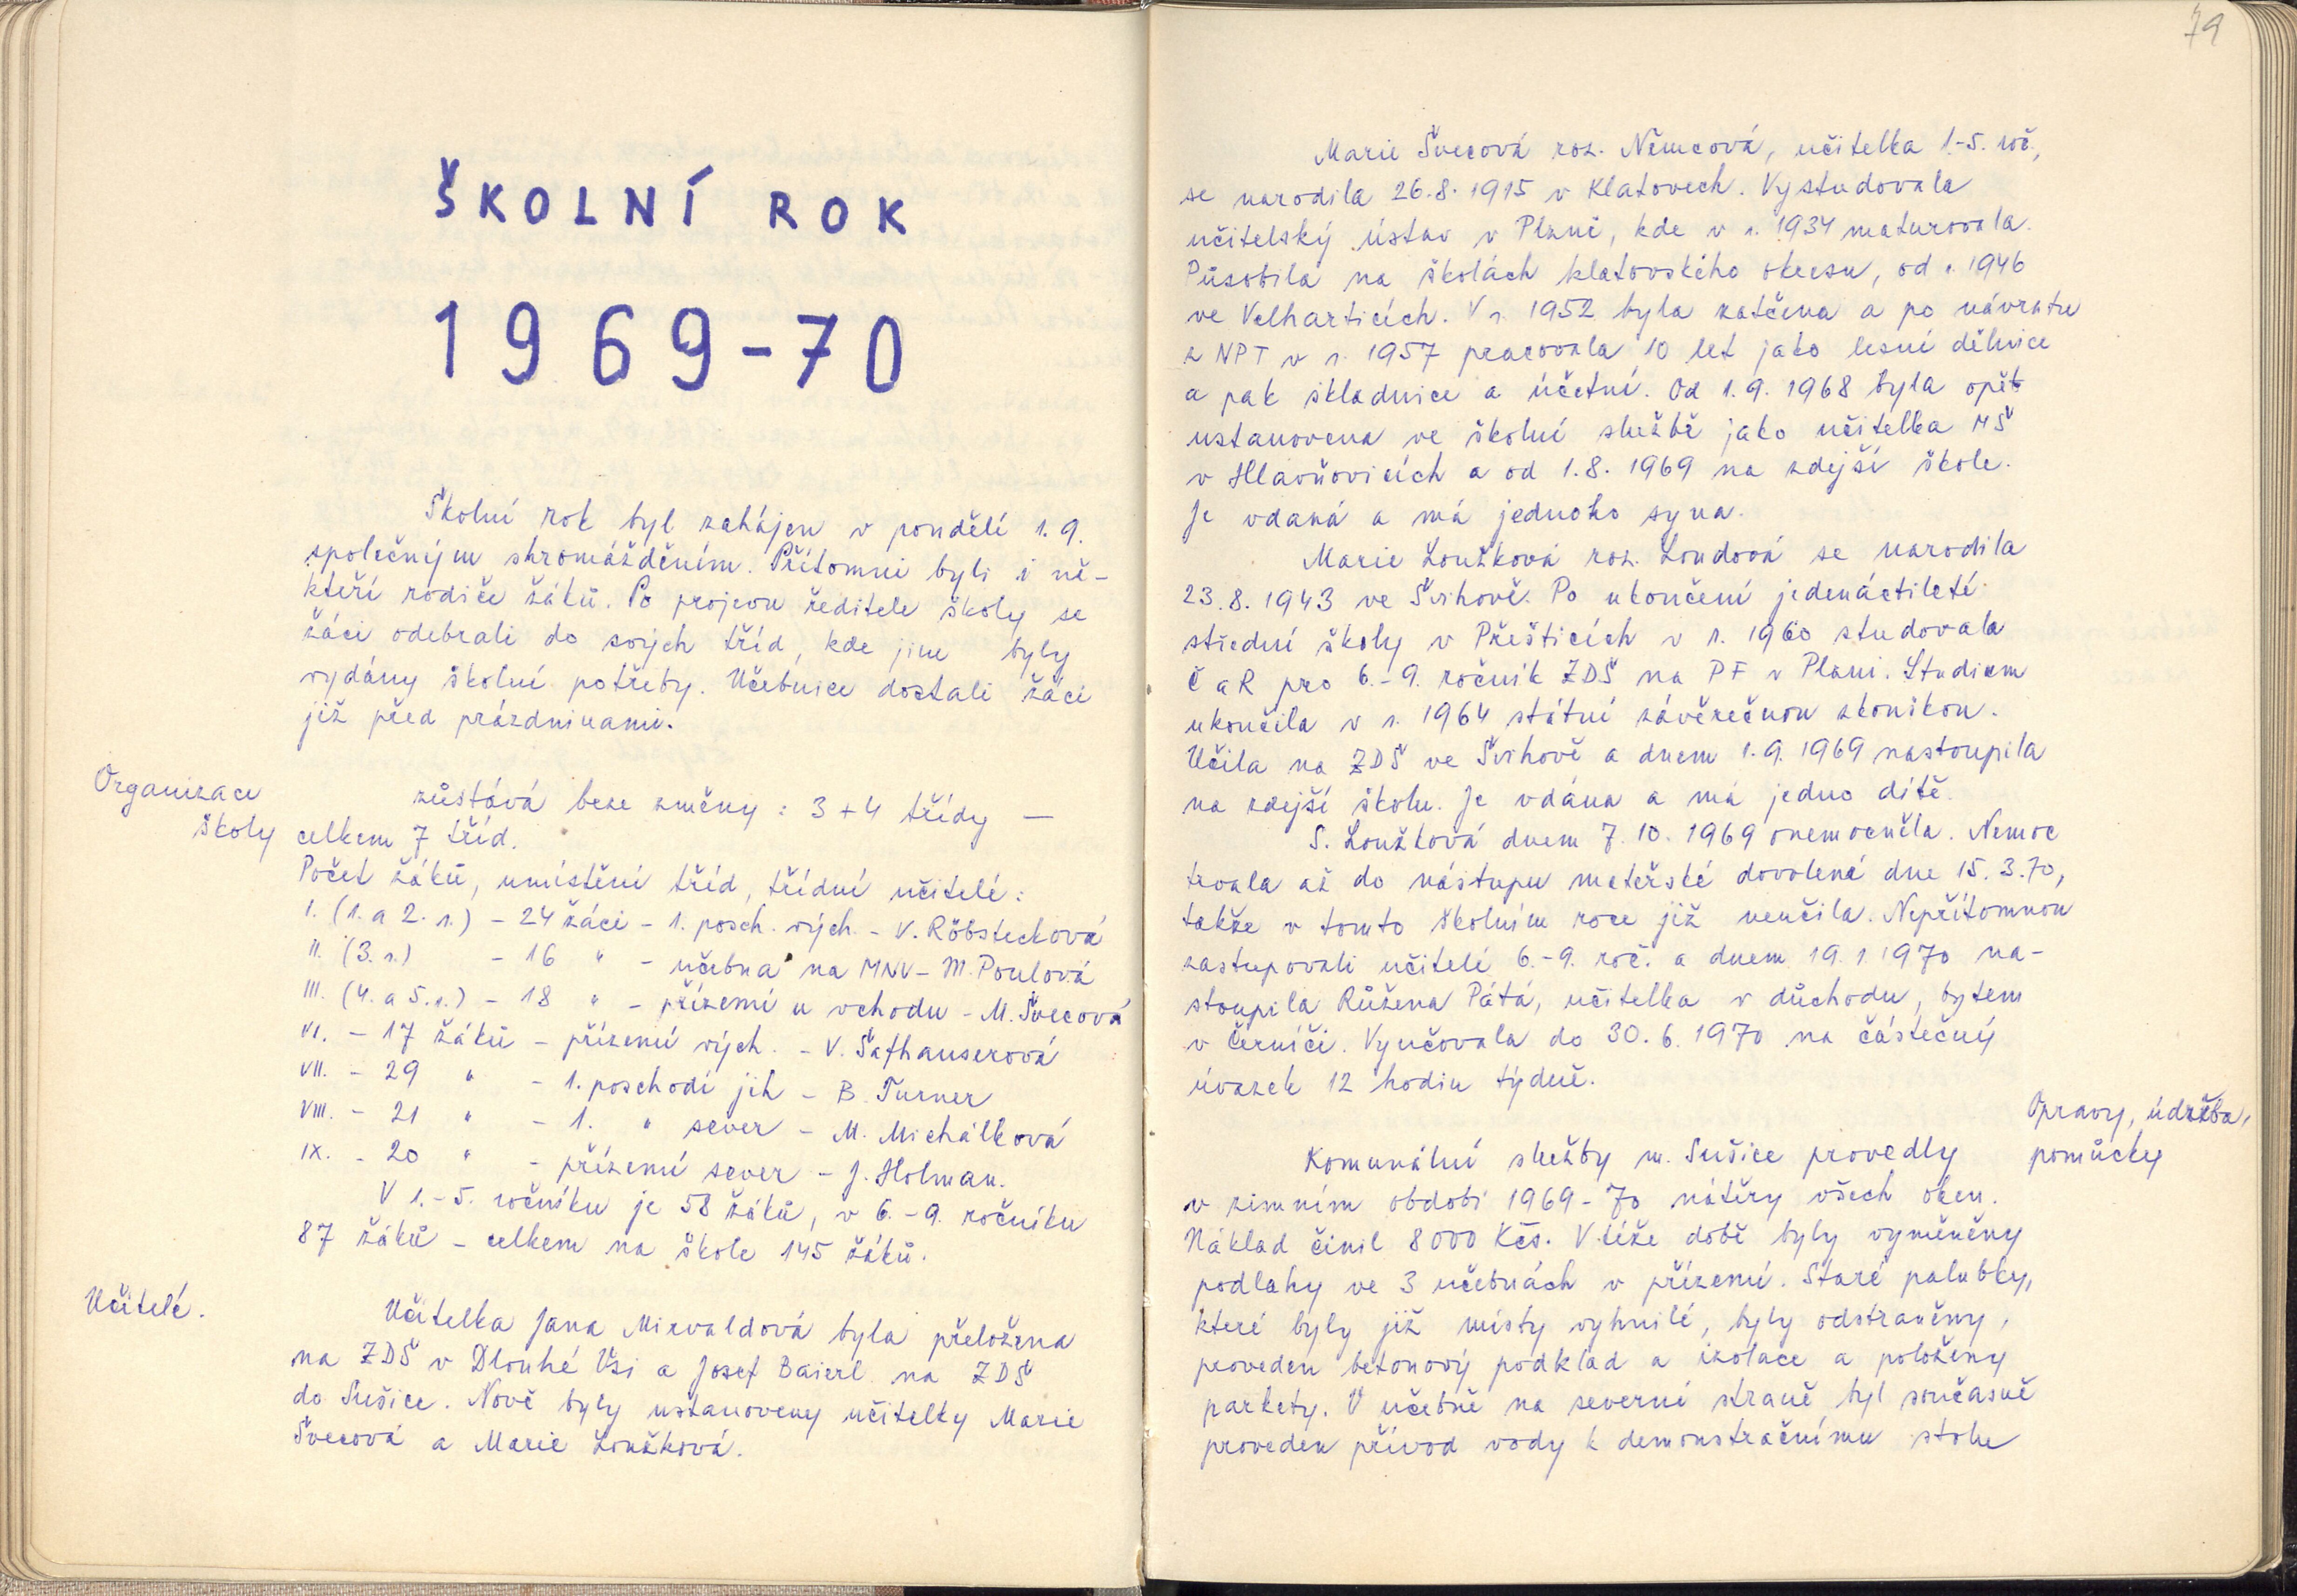 ŠKOLNÍ ROK
1969-70
Školní rok byl zahájen v pondělí 1.9.
společným shromážděním. Přítomni byli i ně-
kteří rodiče žáků. Po projevu ředitele školy se
žáci odebrali do svých tříd, kde jim byly
vydány školní potřeby. Učebnice dostali žáci
již před prázdninami.
Organizace
školy
zůstává beze změny: 3+4 třídy —
celkem 7 tříd.
Počet žáků, umístění tříd, třídní učitelé:
I. (1. a 2. r.) - 24 žáci - 1. posch. vých. - V. Röbstecková
II. (3. r.) - 16 " - učebna na MNV - M. Poulová
III. (4. a 5. r.) - 18 " - přízemí u vchodu - M. Švecová
VI. - 17 žáků - přízemí vých. - V. Šafhauserová
VII. - 29 " - 1. poschodí jih - B. Turner
VIII. - 21 " - 1. " sever - M. Michálková
IX. - 20 " - přízemí sever - J. Holman.
V 1.-5. ročníku je 58 žáků, v 6.-9. ročníku
87 žáků - celkem na škole 145 žáků.
Učitelé.
Učitelka Jana Mirvaldová byla přeložena
na ZDŠ v Dlouhé Vsi a Josef Baierl na ZDŠ
do Sušice. Nově byly ustanoveny učitelky Marie
Švecová a Marie Loužková.
79
Marie Švecová roz. Němcová, učitelka 1.-5. roč.,
se narodila 26.8.1915 v Klatovech. Vystudovala
učitelský ústav v Plzni, kde v r. 1934 maturovala.
Působila na školách klatovského okresu, od r. 1946
ve Velharticích. V r. 1952 byla zatčena a po návratu
z NPT v r. 1957 pracovala 10 let jako lesní dělnice
a pak skladnice a účetní. Od 1.9.1968 byla opět
ustanovena ve školní službě jako učitelka MŠ
v Hlavňovicích a od 1.8.1969 na zdejší škole.
Je vdaná a má jednoho syna.
Marie Loužková roz. Loudová se narodila
23.8.1943 ve Švihově. Po ukončení jedenáctileté
střední školy v Přešticích v r. 1960 studovala
Č a R pro 6.-9. ročník ZDŠ na PF v Plzni. Studium
ukončila v r. 1964 státní závěrečnou zkouškou.
Učila na ZDŠ ve Švihově a dnem 1.9.1969 nastoupila
na zdejší školu. Je vdána a má jedno dítě.
S. Loužková dnem 7.10.1969 onemocněla. Nemoc
trvala až do nástupu mateřské dovolené dne 15.3.70,
takže v tomto školním roce již neučila. Nepřítomnou
zastupovali učitelé 6.-9. roč. a dnem 19.1.1970 na-
stoupila Růžena Pátá, učitelka v důchodu, bytem
v Černíči. Vyučovala do 30.6.1970 na částečný
úvazek 12 hodin týdně.
Opravy, údržba,
pomůcky
Komunální služby m. Sušice provedly
v zimním období 1969-70 nátěry všech oken.
Náklad činil 8000 Kčs. V téže době byly vyměněny
podlahy ve 3 učebnách v přízemí. Staré palubky,
které byly již místy vyhnilé, byly odstraněny,
proveden betonový podklad a izolace a položeny
parkety. V učebně na severní straně byl současně
proveden přívod vody k demonstračnímu stolu